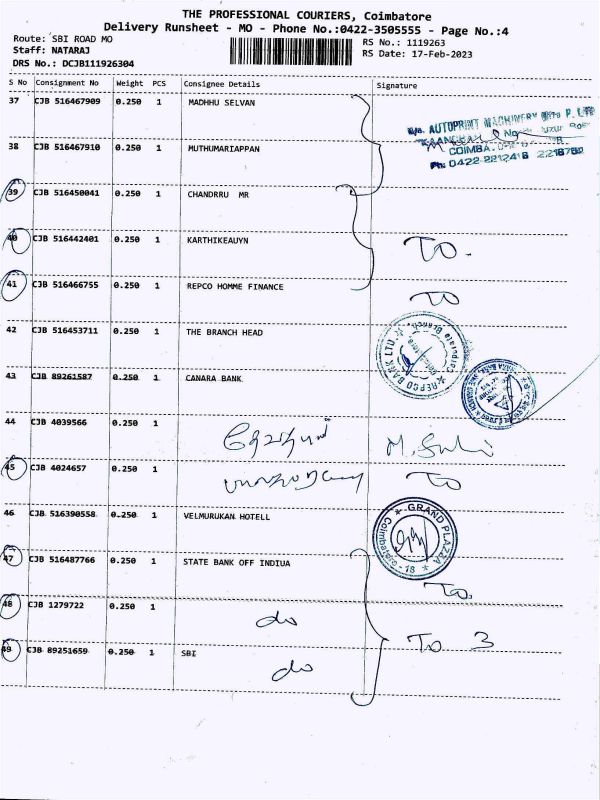 THE PROFESSIONAL COURIERS, Coimbatore
Delivery Runsheet - MO - Phone No.:0422-3505555 - Page No.:4
Route: SBI ROAD MO
RS No.: 1119263
Staff: NATARAJ
RS Date: 17-Feb-2023
DRS No.: DCJB111926304
S No Consignment No Weight PCS Consignee Details Signature
37 CJB 516467909 0.250 1 MADHHU SELVAN
AUTOPRINT MACHINERY P. LTD
COIMBA
Ph: 0422-2212416
38 CJB 516467910 0.250 1 MUTHUMARIAPPAN
39 CJB 516450041 0.250 1 CHANDRRU MR
40 CJB 516442401 0.250 1 KARTHIKEAUYN TO.
41 CJB 516466755 0.250 1 REPCO HOMME FINANCE TO
42 CJB 516453711 0.250 1 THE BRANCH HEAD
REPCO BANK LTD.
43 CJB 89261587 0.250 1 CANARA BANK
44 CJB 4039566 0.250 1
45 CJB 4024657 0.250 1 TO
46 CJB 516390558 0.250 1 VELMURUKAN HOTELL
GRAND PLAZAA
Coimbatore - 18
47 CJB 516487766 0.250 1 STATE BANK OFF INDIUA To.
48 CJB 1279722 0.250 1 do
To 3
49 CJB 89251659 0.250 1 SBI do